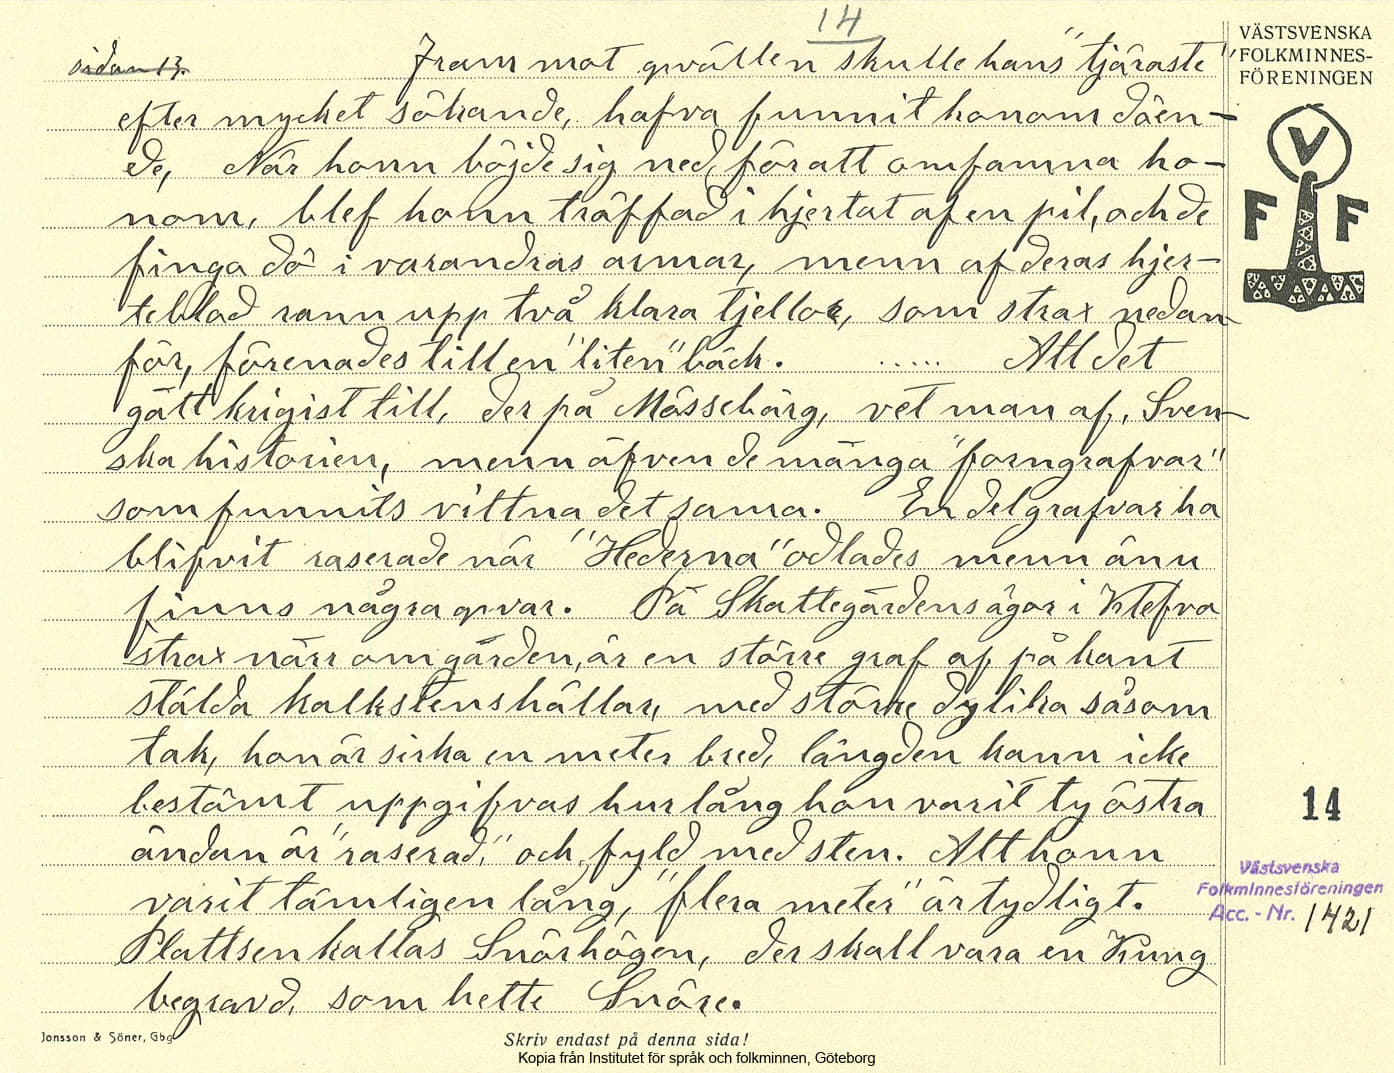 14
sidan 13.
Fram mot qvällen skulle hans "tjäraste"
efter mycket sökande, hafva funnit honom döen-
de, När honn böjde sig ned, för att omfamna ho-
nom, blef honn träffad i hjertat af en pil, och de
finga dö i varandras armar, menn af deras hjer-
teblod rann upp två klara tjellor, som strax nedan
för, förenades till en "liten" bäck. ..... Att det
gått krigist till, der på Mösseberg, vet man af, Sven-
ska historien, menn äfven de många "forngrafvar"
som funnits vittna det sama. En del grafvar ha
blifvit raserade när "Hederna" odlades menn änu
finns några qvar. På Skattegårdens ägor i Klefva
strax närr om gården, är en större graf af på kant
stälda kalkstenshällar, med större dylika såsom
tak, hon är sirka en meter bred, längden kann icke
bestämt uppgifvas hur lång hon varit ty östra
ändan är "raserad," och fyld med sten. Att honn
varit tämligen lång, "flera meter" är tydligt.
Plattsen kallas Snörhögen, der skall vara en Kung
begravd, som hette Snöre.
VÄSTSVENSKA
FOLKMINNES-
FÖRENINGEN
V
F F
14
Västsvenska
Folkminnesföreningen
Acc. - Nr. 1421
Jonsson & Söner, Gbg
Skriv endast på denna sida!
Kopia från Institutet för språk och folkminnen, Göteborg